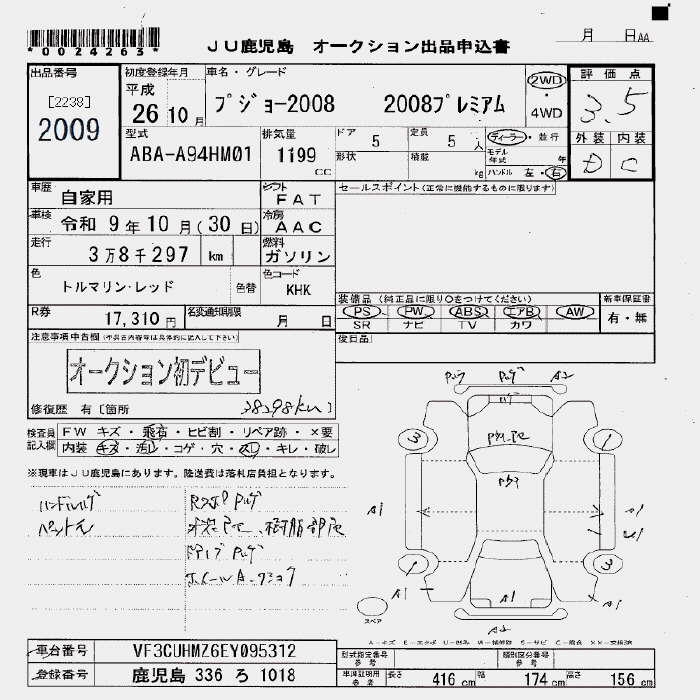 *0024263*
JU鹿児島 オークション出品申込書
月 日AA
出品番号
[2238]
2009
初度登録年月
平成
26 10月
車名・グレード
プジョー2008 2008プレミアム
2WD
・
4WD
評価点
3.5
外装 内装
D C
型式
ABA-A94HM01
排気量
1199
CC
ドア 5
定員 5 人
形状
積載 kg
ディーラー・並行
モデル年式 年
ハンドル 左・右
車歴 自家用
シフト FAT
セールスポイント(正常に機能するものに限ります)
車検 令和 9年 10月(30日)
冷房 AAC
走行 3万8千297 km
燃料 ガソリン
色 トルマリン・レッド
色替
色コード KHK
装備品(純正品に限り○をつけてください)
新車保証書
PS PW ABS エアB AW
有・無
SR ナビ TV カワ
R券 17,310円
名変通知期限 月 日
後日品
注意事項申告欄(不具合内容等は具体的に記入して下さい)
オークション初デビュー
修復歴 有〔箇所
38298km
検査員記入欄
FW キズ・飛石・ヒビ割・リペア跡・×要
内装 キズ・汚レ・コゲ・穴・スレ・キレ・破レ
※現車はJU鹿児島にあります。陸送費は落札店負担となります。
A2
3
1
A1
A1
1
3
A1
A1
A1
A2
スペア
車台番号 VF3CUHMZ6EY095312
登録番号 鹿児島 336 ろ 1018
型式指定番号 参考
類別区分番号 参考
車庫証明用 参考
長さ 416 cm
幅 174 cm
高さ 156 cm